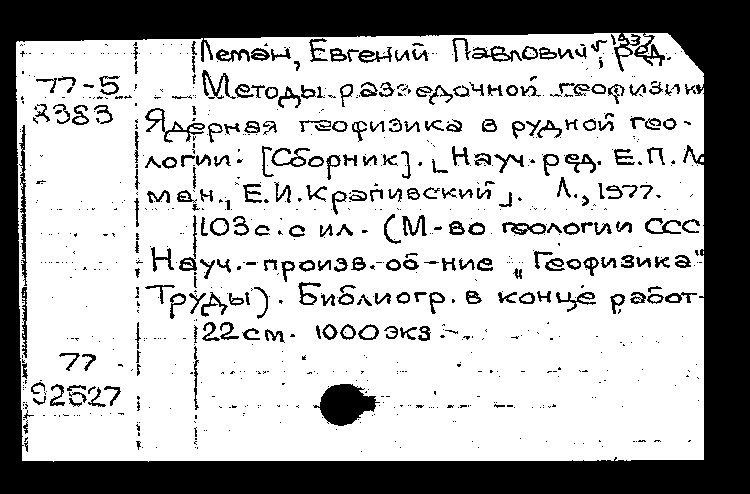 Леман, Евгений Павлович, ред. 1937
77-5 Методы разведочной геофизики
8383 Ядерная геофизика в рудной гео-
логии: [Сборник]. [Науч. ред. Е.П. Ле
ман, Е.И. Крапивский]. Л., 1977.
103 с. с ил. (М-во геологии ССС
Науч.-произв. об-ние „Геофизика"
Труды). Библиогр. в конце работ-
22 см. 1000 экз.
77
92627